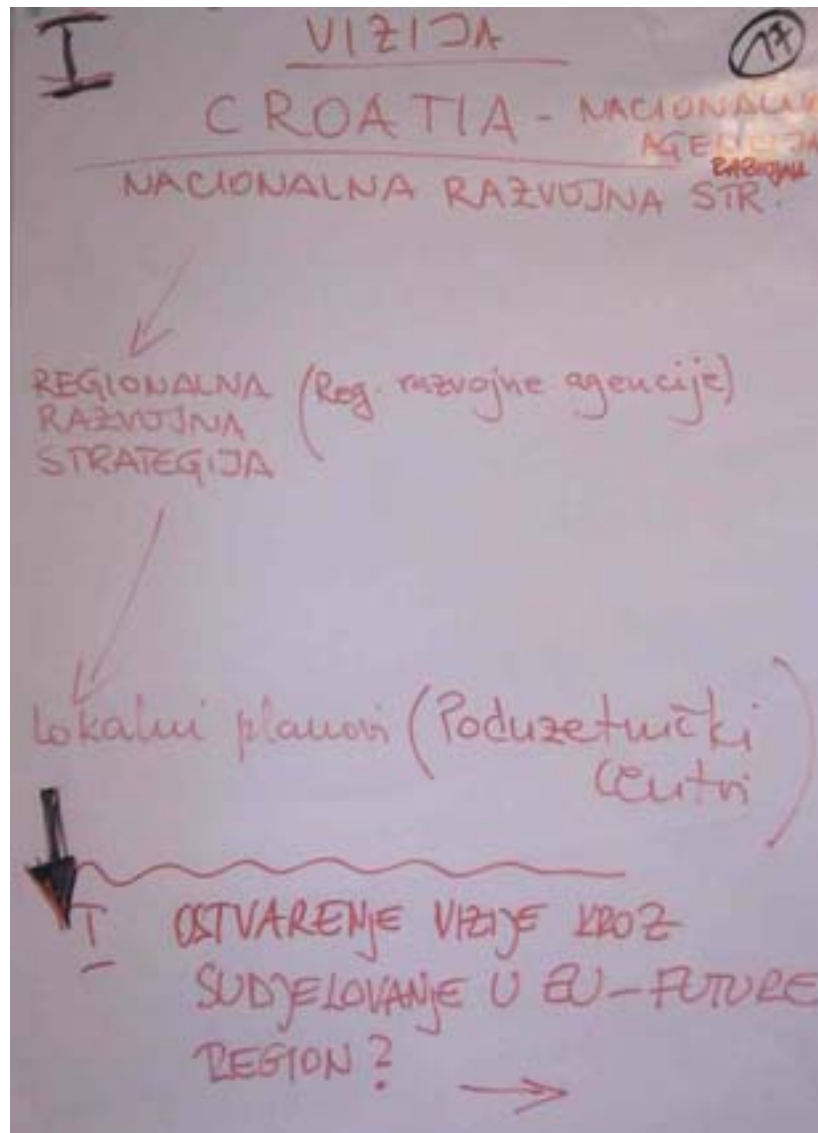 I
VIZIJA
17
CROATIA - NACIONALNA
AGENCIJA
NACIONALNA RAZVOJNA STR.
REGIONALNA (Reg. razvojne agencije)
RAZVOJNA
STRATEGIJA
Lokalni planovi (Poduzetnički
centri)
I OSTVARENJE VIZIJE KROZ
SUDJELOVANJE U EU-FUTURE
REGION?